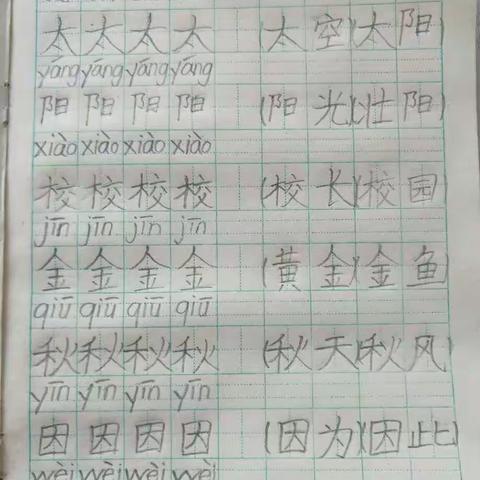 太 太 太 太 (太空)(太阳)
yáng yáng yáng yáng
阳 阳 阳 阳 (阳光)(壮阳)
xiào xiào xiào xiào
校 校 校 校 (校长)(校园)
jīn jīn jīn jīn
金 金 金 金 (黄金)(金鱼)
qiū qiū qiū qiū
秋 秋 秋 秋 (秋天)(秋风)
yīn yīn yīn yīn
因 因 因 因 (因为)(因此)
wèi wèi wèi wèi